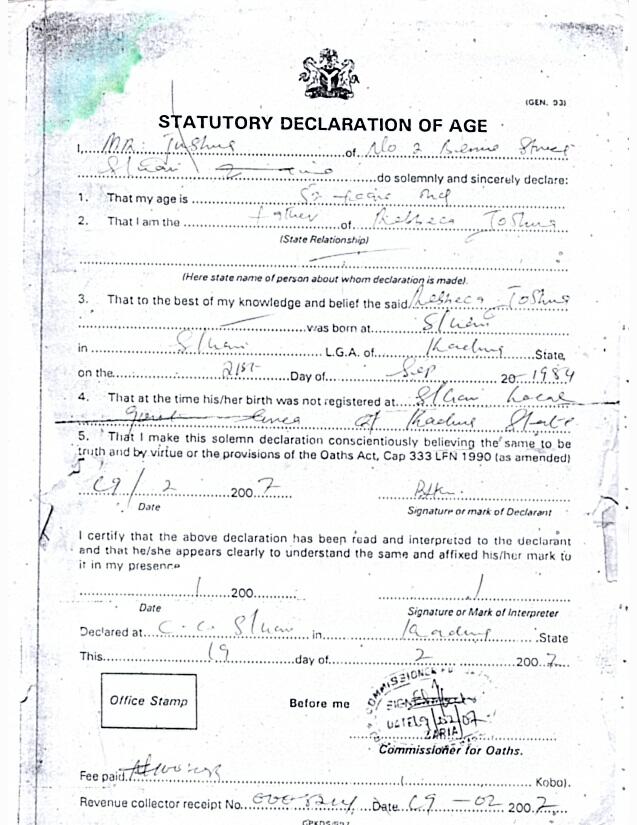 (GEN. 93)
STATUTORY DECLARATION OF AGE
I, MR. Joshua of No 2 Benue Street
do solemnly and sincerely declare:
1. That my age is 52 years and
2. That I am the Father of Rebbeca Joshua
(State Relationship)
(Here state name of person about whom declaration is made).
3. That to the best of my knowledge and belief the said Rebbeca Joshua
was born at
in L.G.A. of Kaduna State,
on the 21st Day of Sep 20 1984
4. That at the time his/her birth was not registered at Local
Area of Kaduna State
5. That I make this solemn declaration conscientiously believing the same to be
truth and by virtue or the provisions of the Oaths Act, Cap 333 LFN 1990 (as amended)
19 / 2 200 7
Date
Signature or mark of Declarant
I certify that the above declaration has been read and interpreted to the declarant
and that he/she appears clearly to understand the same and affixed his/her mark to
it in my presence
/ 200
Date
Signature or Mark of Interpreter
Declared at in Kaduna State
This 19 day of 2 200 7
Office Stamp
Before me
COMMISSIONER FO
SIGNED
DATE 19/02/07
ZARIA
Commissioner for Oaths.
Fee paid ( Kobo).
Revenue collector receipt No. Date 19 - 02 200 7